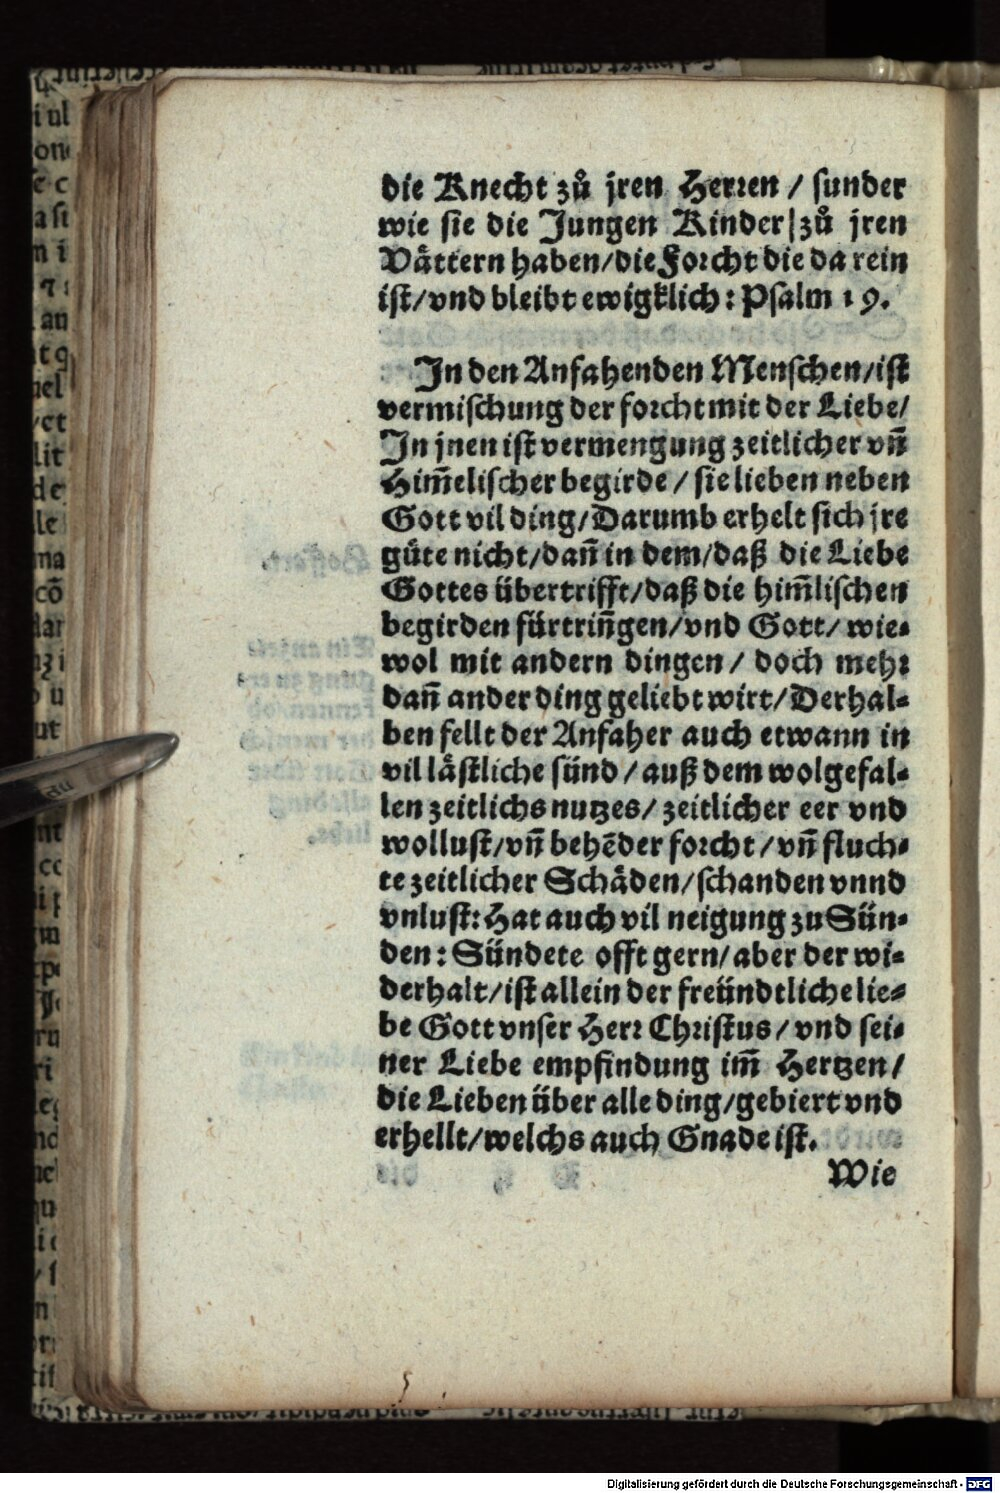 die Knecht zů jren Herren / sunder
wie sie die Jungen Kinder / zů jren
Våttern haben / die Forcht die da rein
ist / vnd bleibt ewigklich : Psalm 19.
In den Anfahenden Menschen / ist
vermischung der forcht mit der Liebe /
In jnen ist vermengung zeitlicher vñ
Him̃elischer begirde / sie lieben neben
Gott vil ding / Darumb erhelt sich jre
gůte nicht / dañ in dem / daß die Liebe
Gottes übertrifft / daß die him̃lischen
begirden fürtriñgen / vnd Gott / wie⸗
wol mit andern dingen / doch mehr
dañ ander ding geliebt wirt / Derhal⸗
ben fellt der Anfaher auch etwann in
vil låstliche sünd / auß dem wolgefal⸗
len zeitlichs nutzes / zeitlicher eer vnd
wollust / vñ behẽder forcht / vñ fluch⸗
te zeitlicher Schåden / schanden vnnd
vnlust : Hat auch vil neigung zu Sün⸗
den : Sündete offt gern / aber der wi⸗
derhalt / ist allein der freündtliche lie⸗
be Gott vnser Herr Christus / vnd sei⸗
ner Liebe empfindung im̃ Hertzen /
die Lieben über alle ding / gebiert vnd
erhellt / welchs auch Gnade ist.
Wie
Digitalisierung gefördert durch die Deutsche Forschungsgemeinschaft - DFG